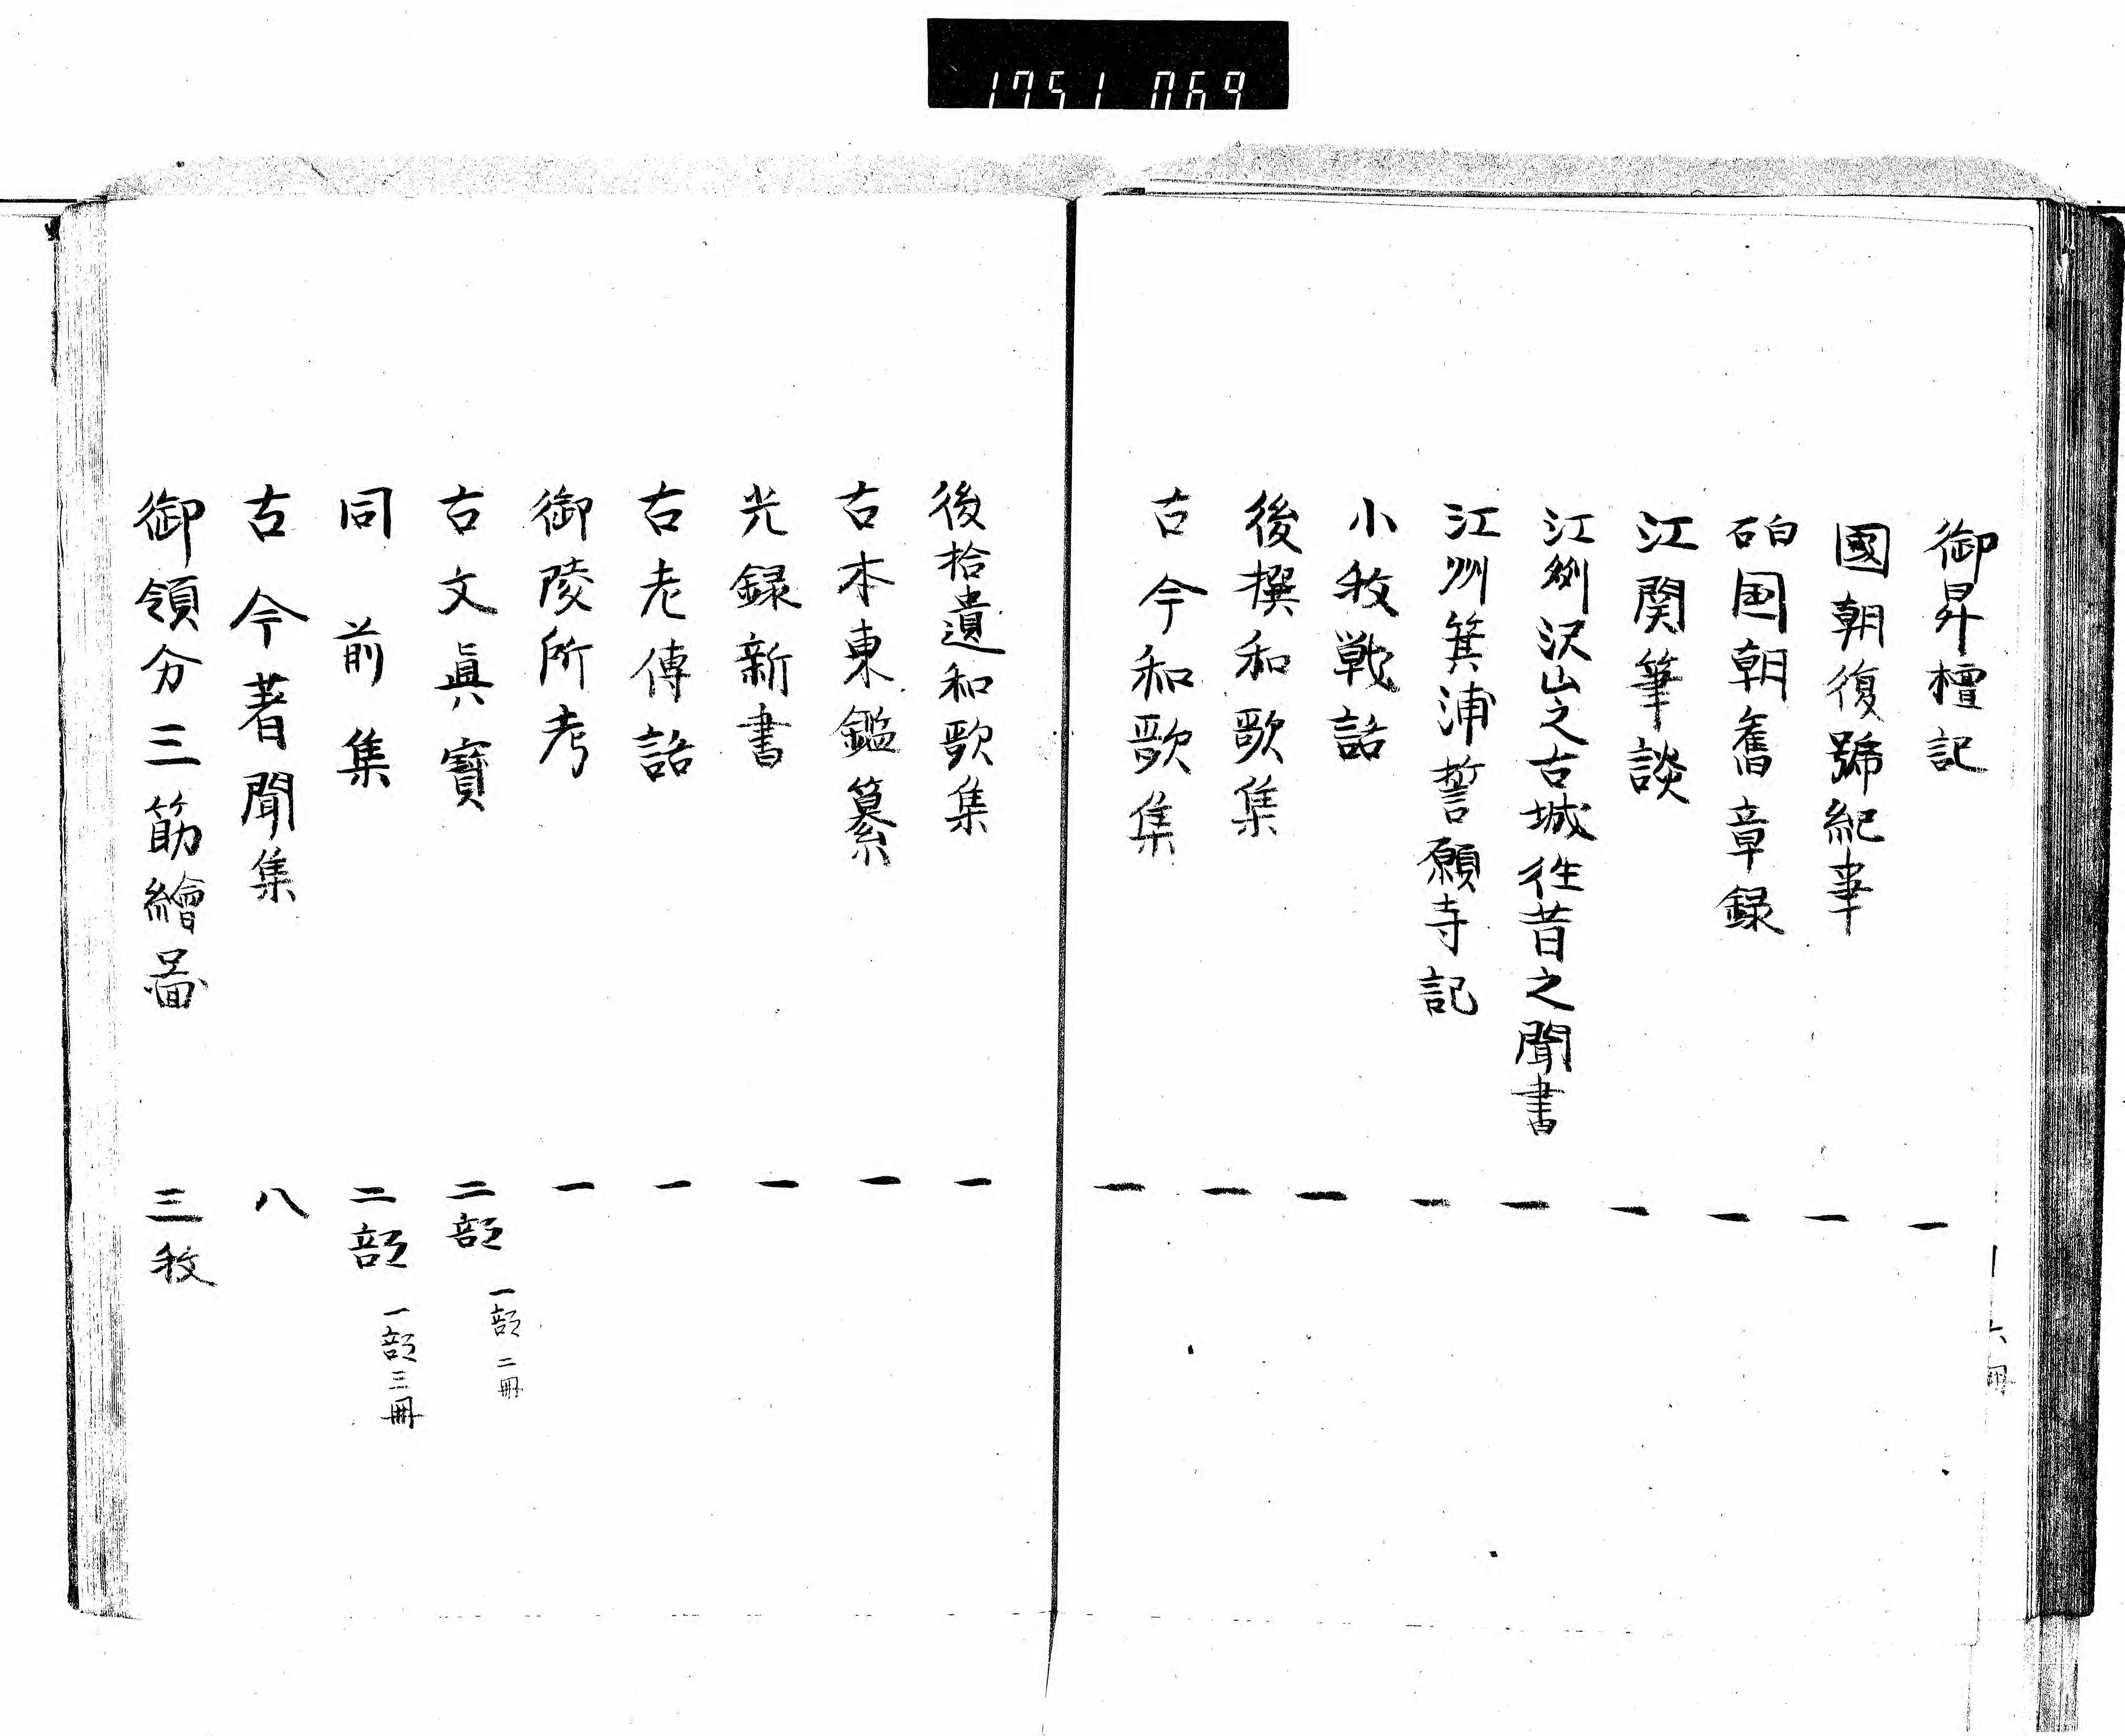 1751 069
御昇檀記 一
國朝復號紀事 一
硈国朝舊章録 一
江関筆談 一
江州沢山之古城徃昔之聞書 一
江州箕浦誓願寺記 一
小牧戦話 一
後撰和歌集 一
古今和歌集 一
後拾遺和歌集 一
古本東鑑纂 一
光録新書 一
古老傳話 一
御陵所考 一
古文眞寶 二部 一部二冊
同前集 二部 一部三冊
古今著聞集 八
御領分三筋繪圖 三枚